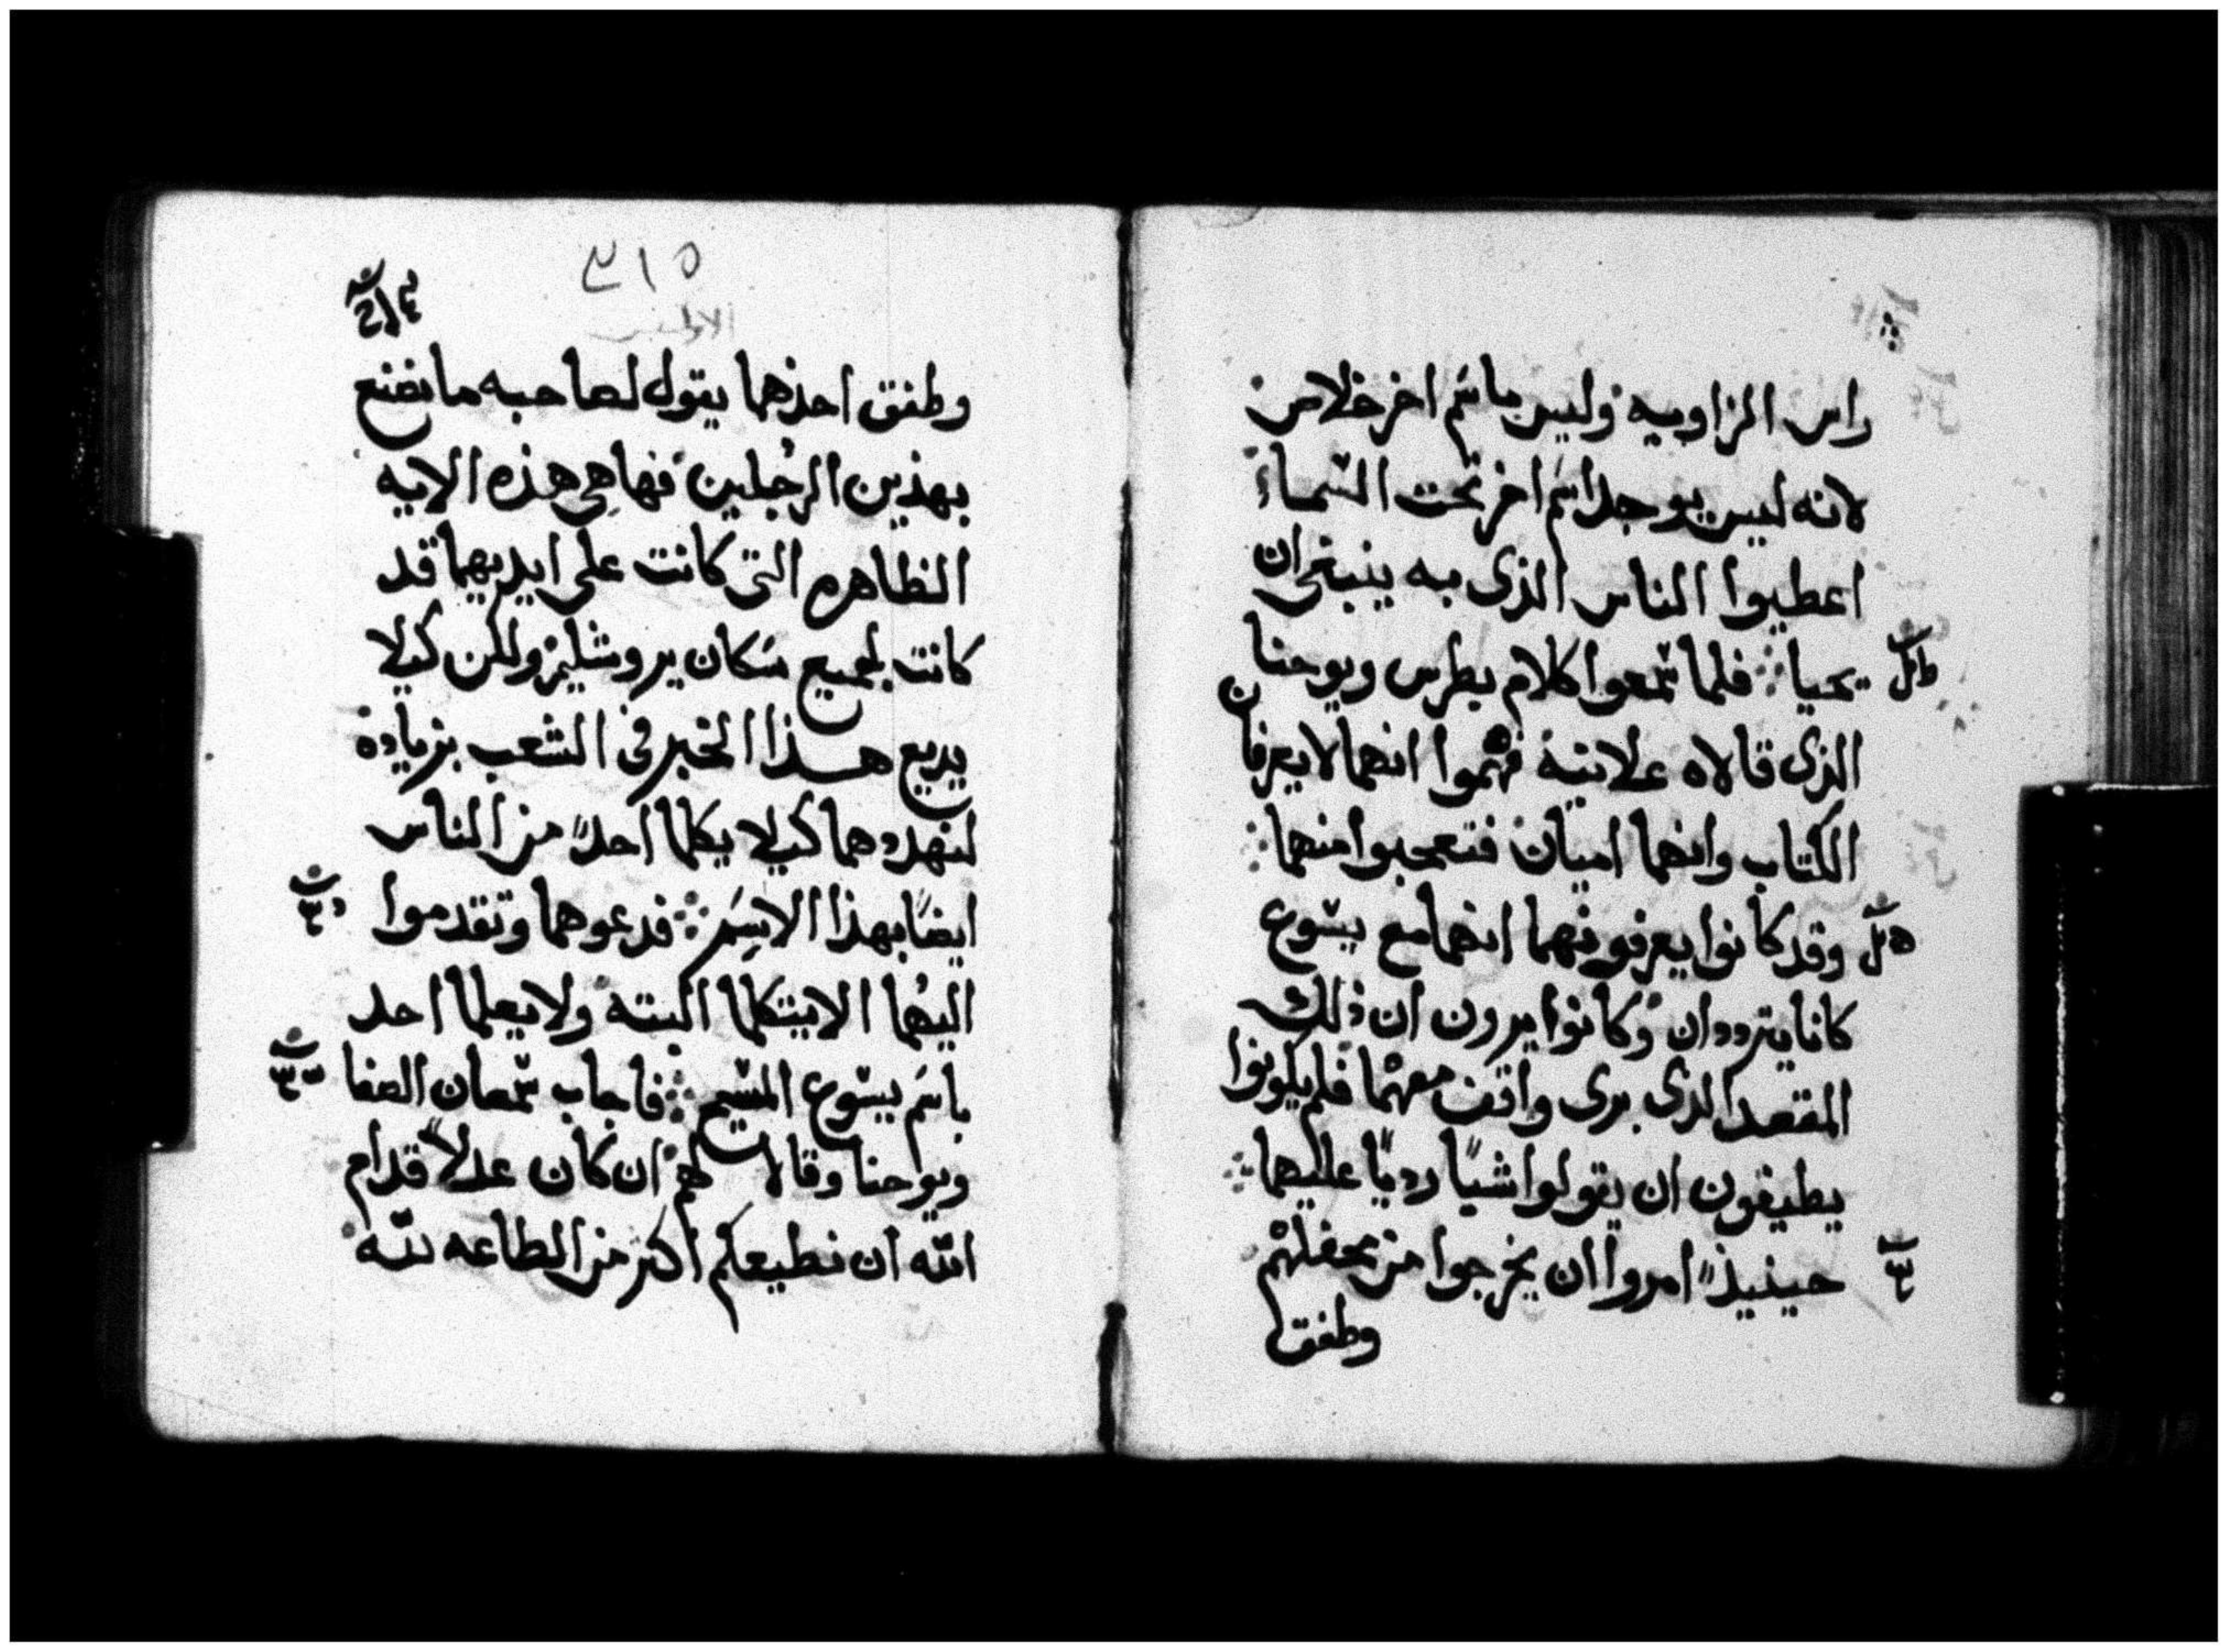 راس الزاويه وليس باسم اخر خلاص
لانه ليس يوجد اسم اخر تحت السماء
اعطيوا الناس الذى به ينبغى ان
يحيا فلما سمعوا كلام بطرس ويوحنا
الذى قالاه علانية فهموا انهما لا يعرفان
الكتاب وانهما اميان فتعجبوا منهما
وقد كانوا يعرفونهما انهما مع يسوع
كانا يترددان وكانوا يرون ان ذلك
المقعد الذى برى واقف معهما فلم يكونوا
يطيقون ان يقولوا شياً ردياً عليهما
حينيذٍ امروا ان يخرجوا من محفلهم
وطفق
٣١٥
وطفق احدهما يقول لصاحبه ما نصنع
بهذين الرجلين فها هى هذه الايه
الظاهره التى كانت على ايديهما قد
كانت لجميع سكان يروشليم ولكن كيلا
يديع هذا الخبر فى الشعب بزيادة
لنهددهما كيلا يكلما احداً من الناس
ايضاً بهذا الاسم فدعوهما وتقدموا
اليهما الا يتكلما البته ولا يعلما احد
باسم يسوع المسيح فاجاب سمعان الصفا
ويوحنا وقالا لهم ان كان عدلاً قدام
الله ان نطيعكم اكثر من الطاعه لله